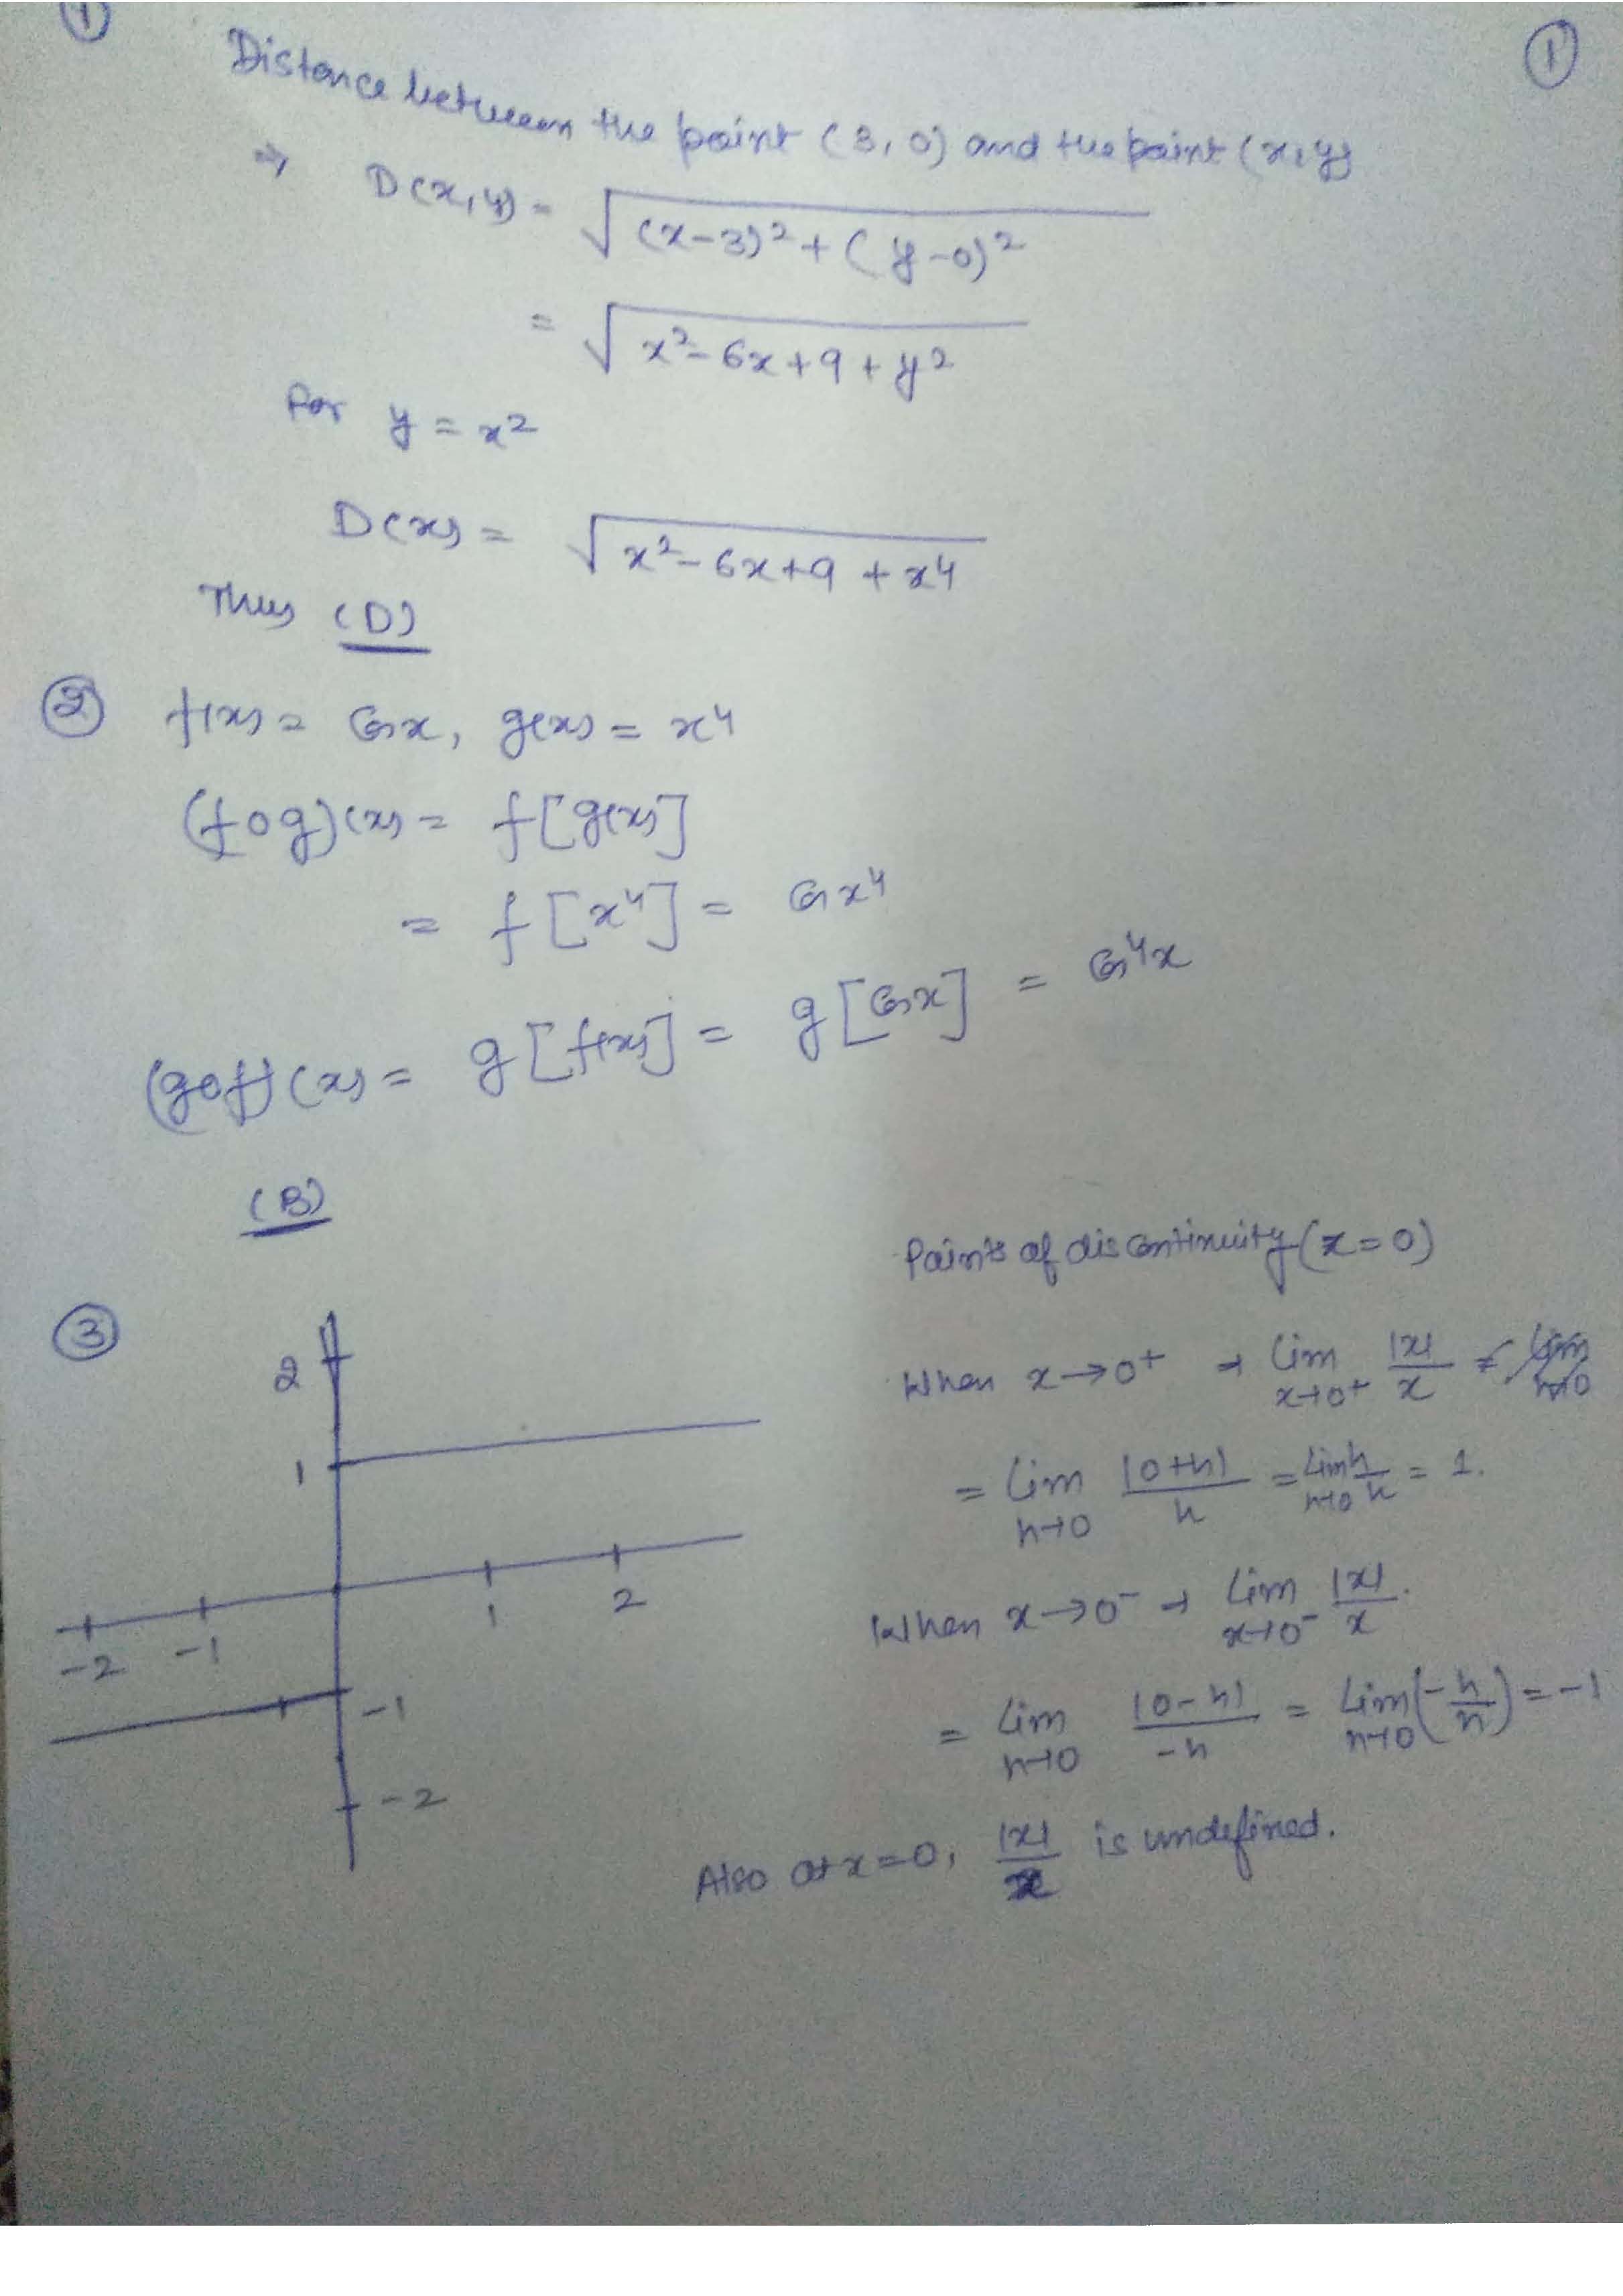 ① ①
Distance between the point (3, 0) and the point (x, y)
⇒ D(x, y) = √((x-3)² + (y-0)²)
= √(x²-6x+9+y²)
For y = x²
D(x) = √(x²-6x+9+x⁴)
Thus (D)
② f(x) = Cos x, g(x) = x⁴
(fog)(x) = f[g(x)]
= f[x⁴] = Cos x⁴
(gof)(x) = g[f(x)] = g[Cos x] = Cos⁴x
(B)
Points of discontinuity (x=0)
③
2
1
-2 -1 1 2
-1
-2
When x→0⁺ → Lim x→0⁺ |x|/x = Lim h→0
= Lim h→0 |0+h|/h = Lim h→0 h/h = 1.
When x→0⁻ → Lim x→0⁻ |x|/x.
= Lim h→0 |0-h|/-h = Lim h→0 (-h/h) = -1
Also at x=0, |x|/x is undefined.